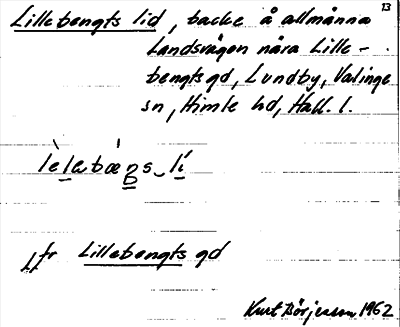 13
Lillebengts lid, backe å allmänna
landsvägen nära Lille-
bengts gd, Lundby, Valinge
sn, Himle hd, Hall. l.
fr Lillebengts gd
Kurt Börjesson 1962